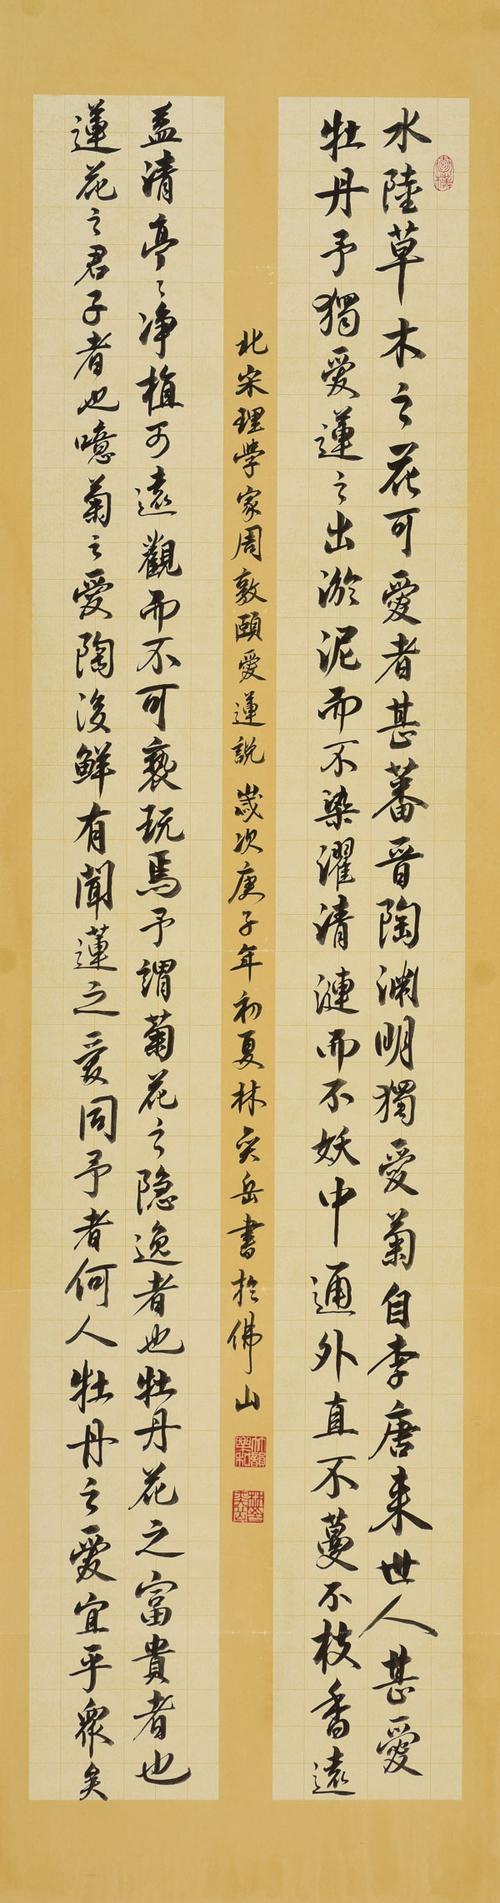 水陸草木之花可愛者甚蕃晉陶渊明獨愛菊自李唐来世人甚愛
牡丹予獨愛蓮之出淤泥而不染濯清漣而不妖中通外直不蔓不枝香遠
益清亭々净植可遠觀而不可褻玩焉予謂菊花之隐逸者也牡丹花之富貴者也
蓮花之君子者也噫菊之愛陶後鮮有聞蓮之愛同予者何人牡丹之愛宜乎衆矣
北宋理学家周敦頤愛蓮說 歲次庚子年初夏林奕岳書於佛山